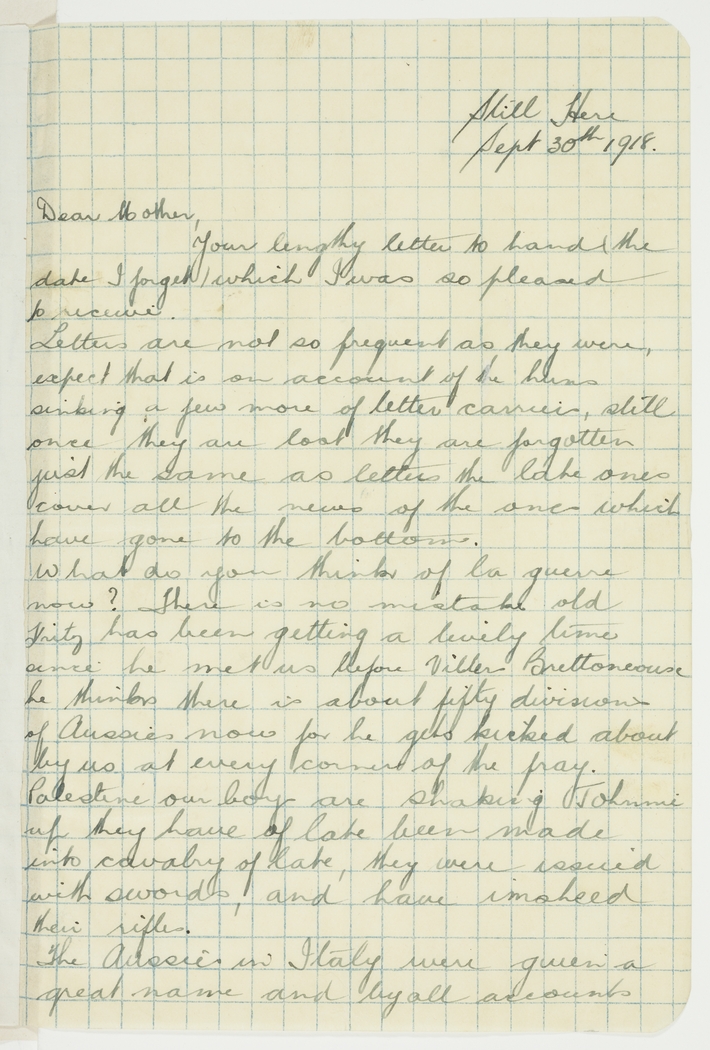 Still Here
Sept 30th 1918.
Dear Mother,
Your lengthy letter to hand (the
date I forget) which I was so pleased
to receive.
Letters are not so frequent as they were,
expect that is on account of the huns
sinking a few more of letter carriers, still
once they are lost they are forgotten
just the same as letters the late ones
cover all the news of the ones which
have gone to the bottom.
What do you think of la guerre
now? There is no mistake old
Fritz has been getting a lively time
since he met us before Viller Brettoneouse
he thinks there is about fifty divisions
of Aussies now for he gets kicked about
by us at every corner of the fray.
Palestine our boys are shaking Johnnie
up they have of late been made
into cavalry of late, they were issued
with swords, and have imsheed
their rifles.
The Aussies in Italy were given a
great name and by all accounts